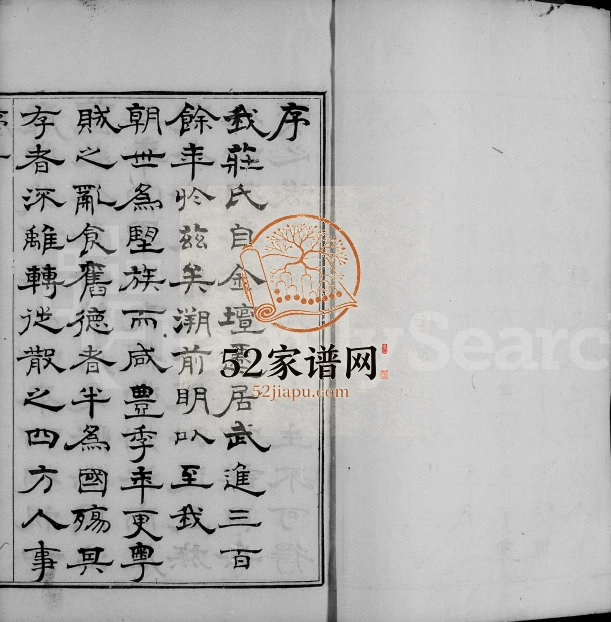 序
我莊氏自金壇居武進三百
餘年於茲矣溯前明以至我
朝世為望族而咸豐季年更粵
賊之亂食舊德者半為國殤其
存者深離轉徙散之四方人事
序
52家谱网
52jiapu.com
Search